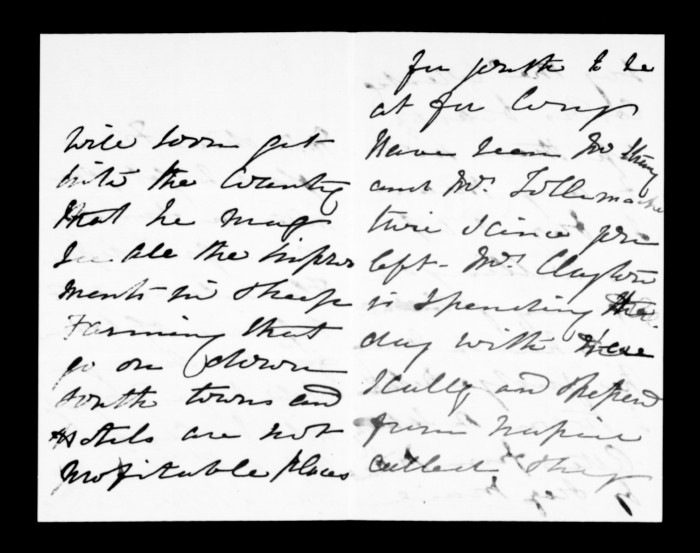 will soon get
into the County
that he may
see all the improv
ments in Sheep
Farming that
go on down
south towns and
Hotels are not
profitable places
for youth to be
at for long
Have seen Mr
and Mr. Tollemache
twice since you
left. Mr Clayton
is spending the
day with
Scully and
from Napier
called they